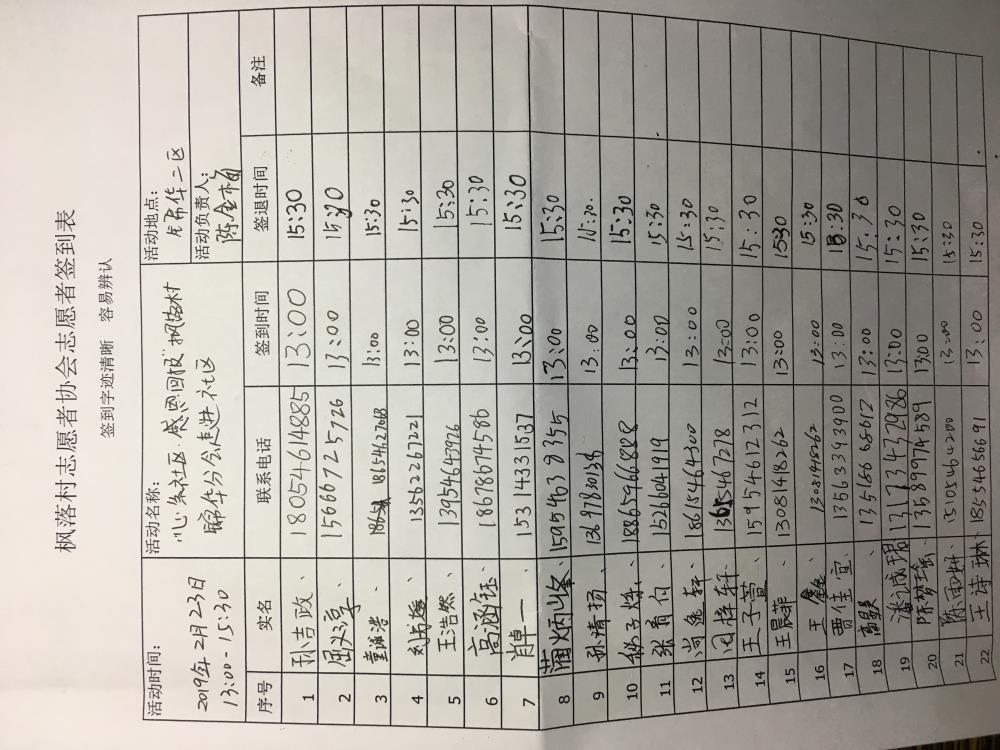 枫落村志愿者协会志愿者签到表
签到字迹清晰 容易辨认
活动时间: 活动名称: 活动地点:
2019年2月23日 "心系社区 感恩回报"枫落村 华二区
13:00-15:30 锦华分会走进社区 活动负责人:
陈金梅
序号 实名 联系电话 签到时间 签退时间 备注
1 孙吉政 18054614885 13:00 15:30
2 15666725726 13:00 15:30
3 童诚浩 18654627068 13:00 15:30
4 13562267221 13:00 15:30
5 王浩然 13954643926 13:00 15:30
6 高涵钰 18678674586 13:00 15:30
7 肖卓一 15314331537 13:00 15:30
8 炳峰 15954638355 13:00 15:30
9 孙清扬 13697830134 13:00 15:30
10 18865966888 13:00 15:30
11 张育付 15266041919 13:00 15:30
12 尚逸轩 18615464300 13:00 15:30
13 田梓轩 13655467278 13:00 15:30
14 王子萱 15954612312 13:00 15:30
15 王晨菲 1308148262 13:00 15:30
16 王鑫 1308148262 13:00 15:30
17 贾佳宜 13563393900 13:00 15:30
18 高昊 135166685612 13:00 15:30
19 潘诚琨 13173437286 13:00 15:30
20 陈梦瑶 13589974589 13:00 15:30
21 陈雨妍 15105464200 13:00 15:30
22 王诗琳 18354656691 13:00 15:30